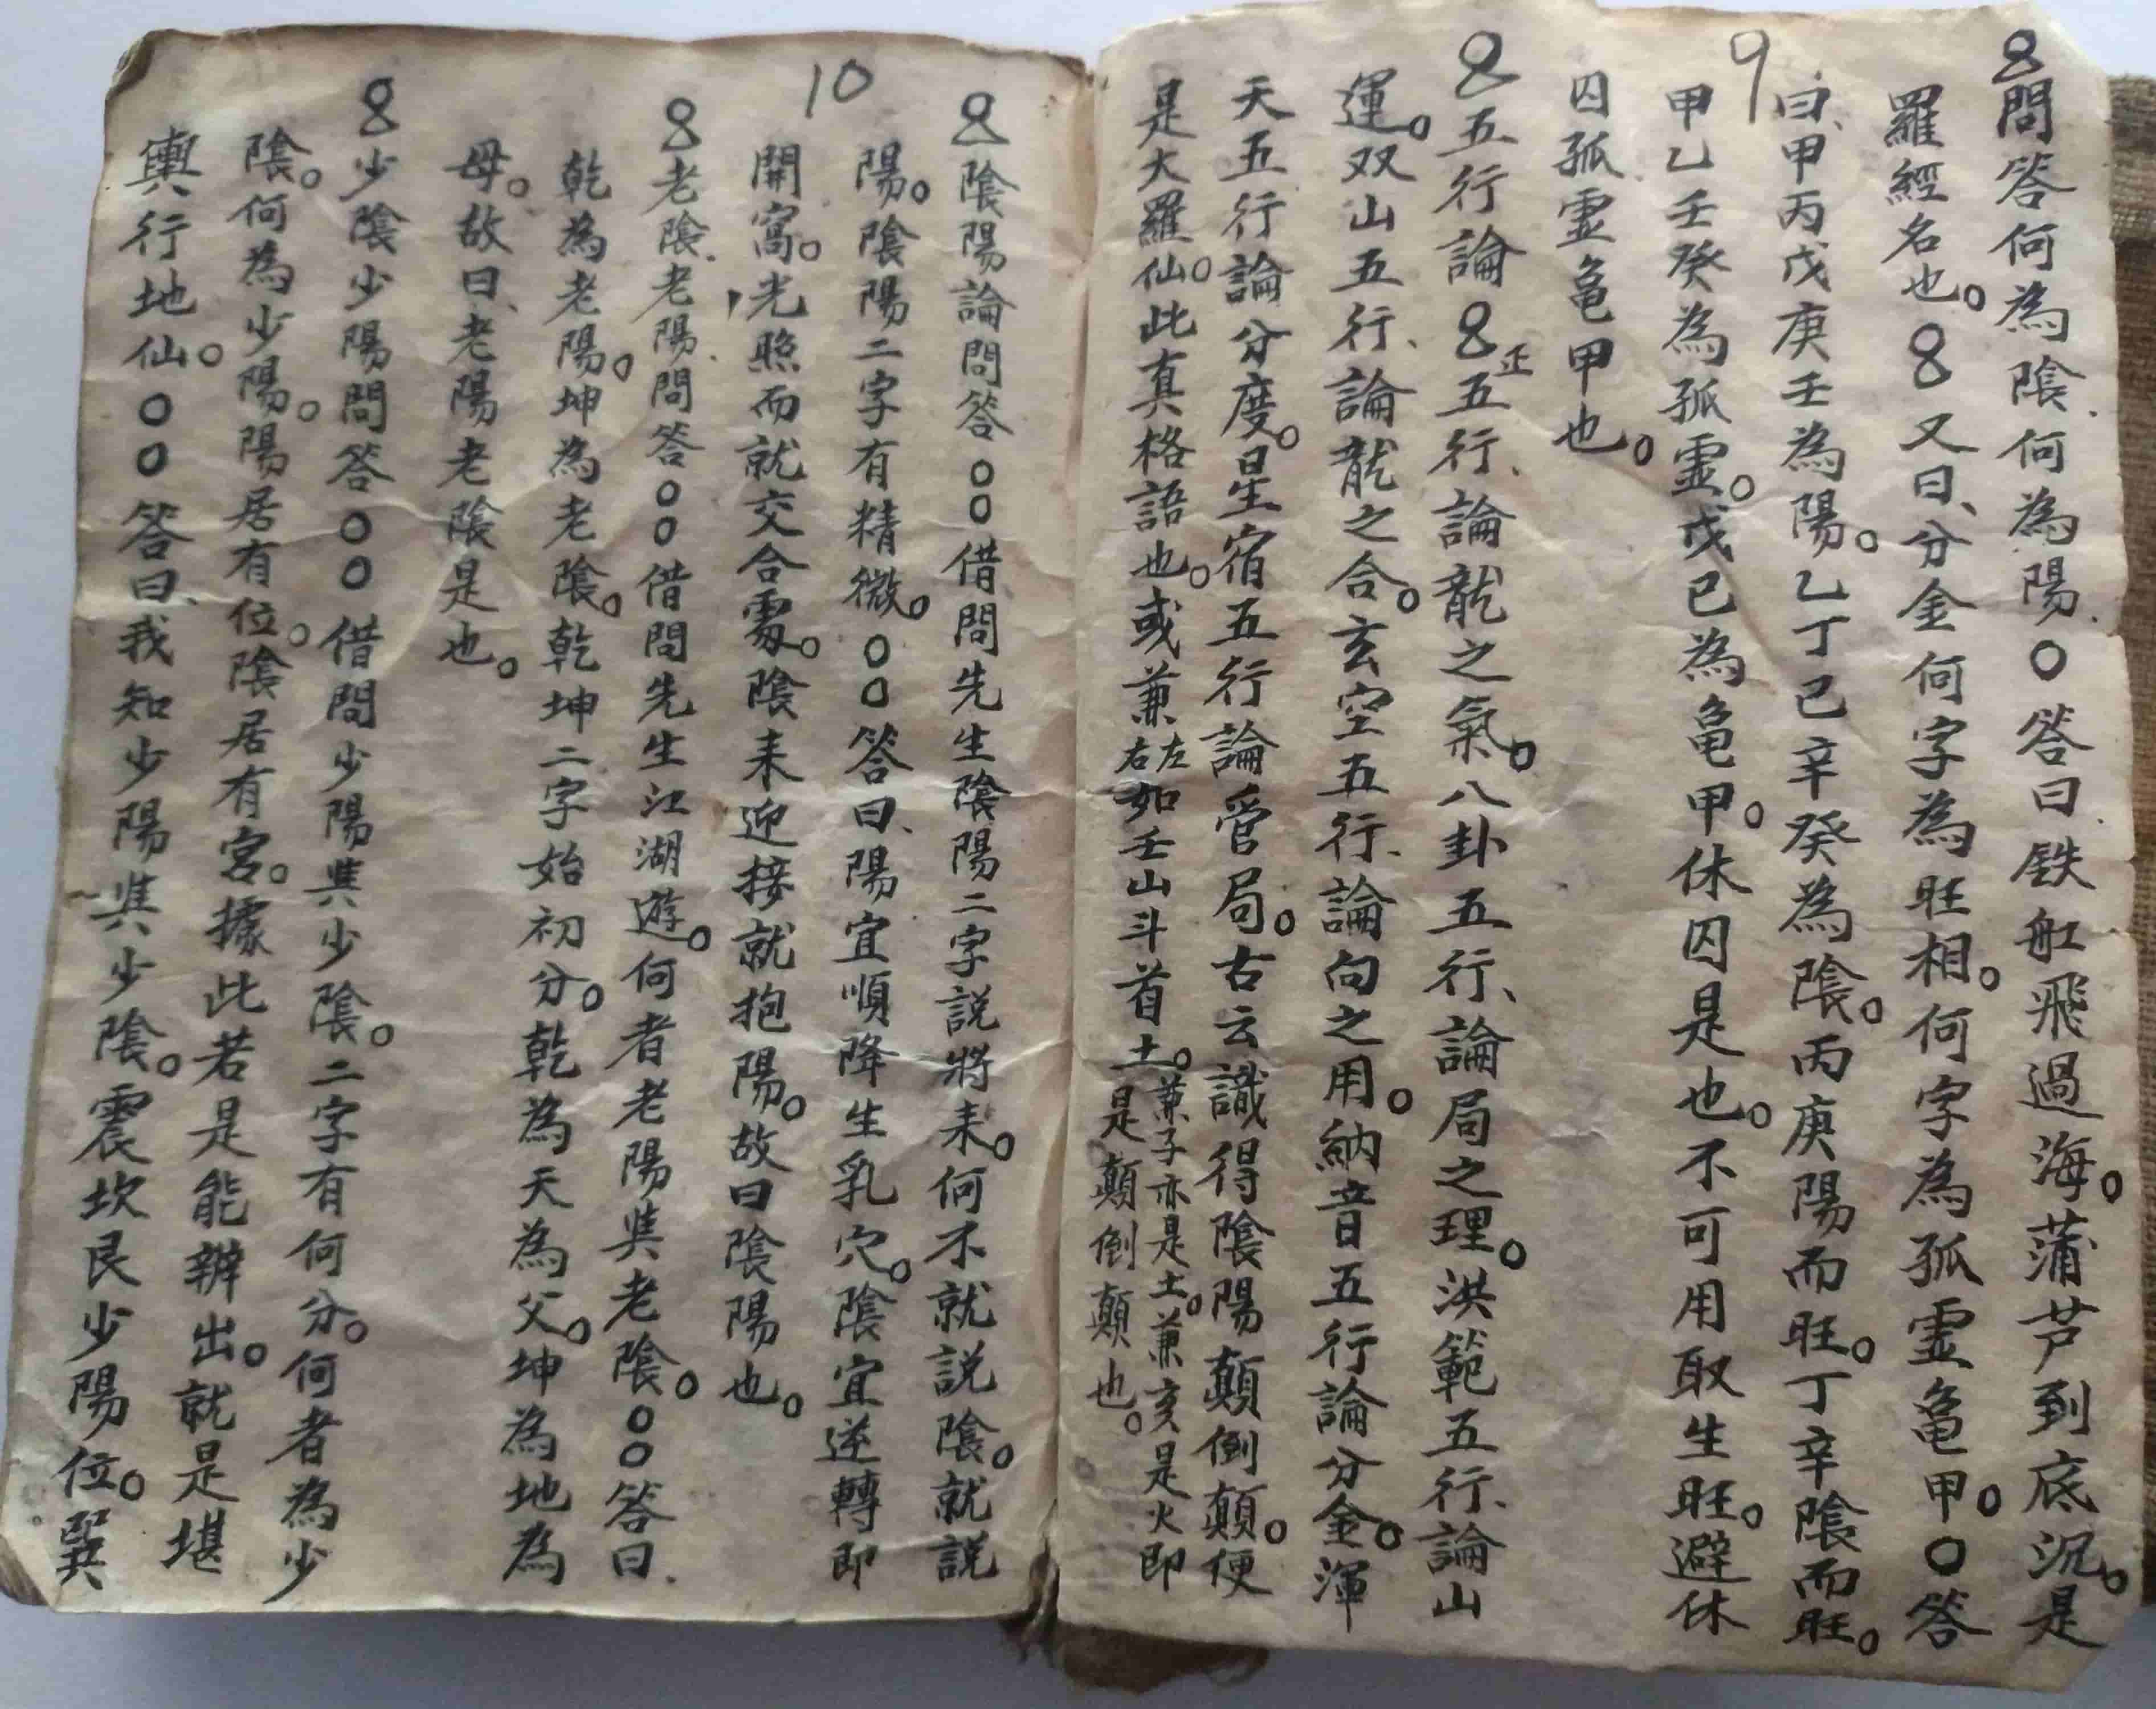 9
問答何為陰.何為陽.○答曰鉄舡飛過海。蒲芦到底沉。是
羅經名也。8又曰、分金何字為旺相。何字為孤霊亀甲。○答
曰、甲丙戊庚壬為陽。乙丁己辛癸為陰。丙庚陽而旺。丁辛陰而旺。
甲乙壬癸為孤霊。戊己為亀甲。休囚是也。不可用取生旺。避休
囚孤霊亀甲也。
8五行論8正五行、論龍之氣。八卦五行、論局之理。洪範五行、論山
運。双山五行、論龍之合。玄空五行、論向之用。納音五行論分金。渾
天五行論分度。星宿五行論管局。古云識得陰陽顛倒顛。便
是大羅仙。此真格語也。或兼左右如壬山斗首土。兼子亦是土。兼亥是火即
是顛倒顛也。
10
8陰陽論問答○○借問先生陰陽二字説將耒。何不就説陰。就説
陽。陰陽二字有精微。○○答曰、陽宜順降生乳穴。陰宜逆轉即
開窩。光照而就交合䖏。陰耒迎接就抱陽。故曰陰陽也。
8老陰.老陽.問答○○借問先生江湖遊。何者老陽與老陰。○○答曰.
乾為老陽。坤為老陰。乾坤二字始初分。乾為天為父。坤為地為
母。故曰、老陽老陰是也。
8少陰少陽問答○○借問少陽與少陰。二字有何分。何者為少
陰。何為少陽。陽居有位。陰居有宮。據此若是能辦出。就是堪
輿行地仙。○○答曰、我知少陽與少陰。震坎艮少陽位。巽